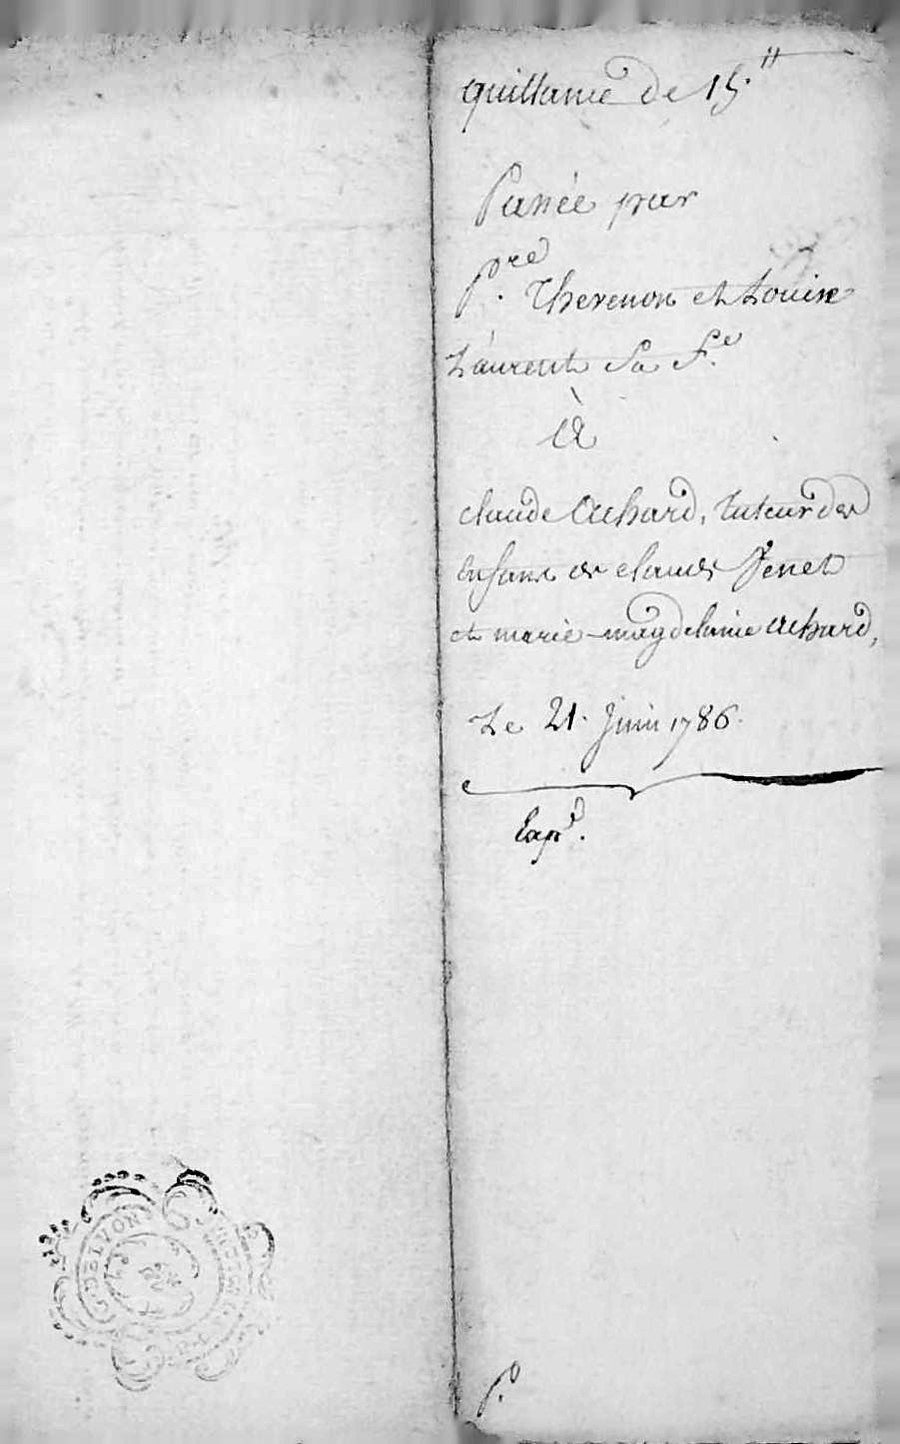 quittance de 15.lt
Passée par
P.re Thevenon et Louise
Laurent Sa f.e
à
claude Achard, tuteur des
enfans de claude Venet
et marie-magdelaine achard,
Le 21. juin 1786.
Exp.d.
DE LYON